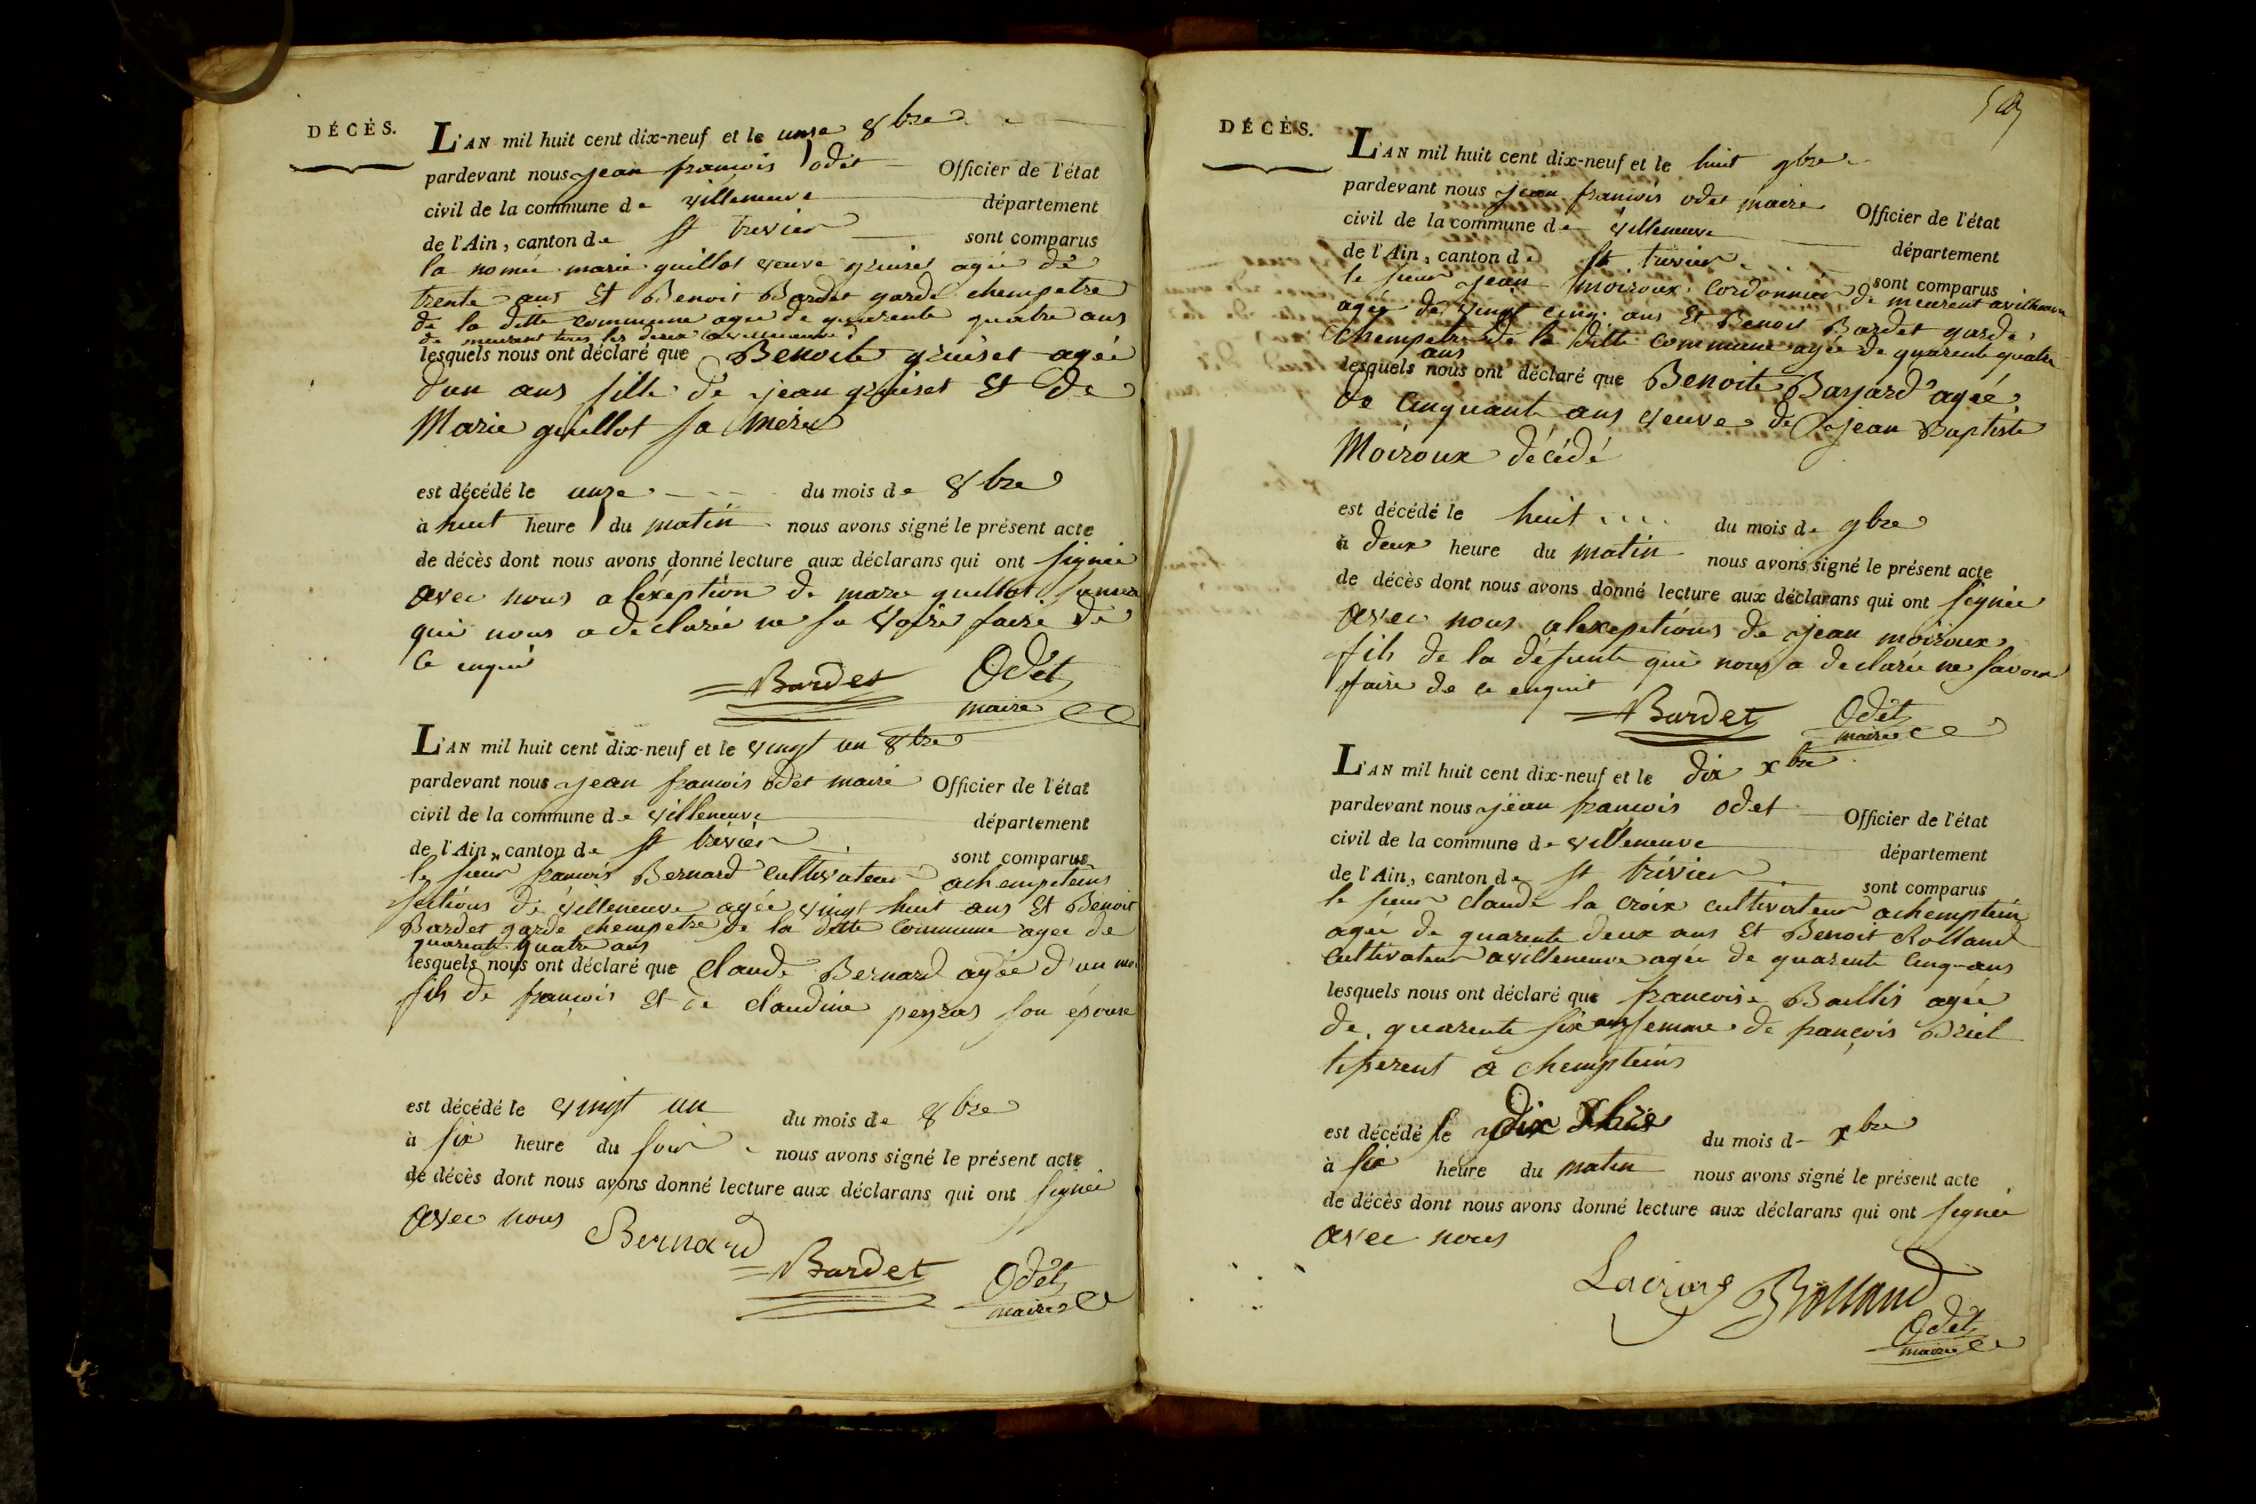 DÉCÈS.
L'AN mil huit cent dix-neuf et le unze 8bre
pardevant nous jean francois odet Officier de l'état
civil de la commune de villeneuve département
de l'Ain, canton de st trevier sont comparus
la nomée marie guillot veuve gruiset agée de
trente ans Et Benoit Bardet garde chempetre
de la ditte commune agee de quarente quatre ans
de meurant tous les deux avilleneuve
lesquels nous ont déclaré que Benoite gruiset agée
d'un ans fille de jean gruiset Et de
Marie guillot sa mère
est décédé le unze du mois de 8bre
à huit heure du matin nous avons signé le présent acte
de décès dont nous avons donné lecture aux déclarans qui ont signée
avec nous a léxeption de marie guillot
qui nous a declarée ne sa voire faire de
ce enquis
Bardet Odet
maire
L'AN mil huit cent dix-neuf et le vingt un 8bre
pardevant nous jean francois odet maire Officier de l'état
civil de la commune de villeneuve département
de l'Ain, canton de st trévier sont comparus
le sieur francois Bernard cultivateur achempteins
sections de villeneuve agée vingt huit ans Et Benoit
Bardet garde chempetre de la ditte commune agee de
quarente quatre ans
lesquels nous ont déclaré que claude Bernard agée d'un moi
fils de francois Et de claudine peyras son épouse
est décédé le vingt un du mois de 8bre
à six heure du soir nous avons signé le présent acte
de décès dont nous avons donné lecture aux déclarans qui ont signée
avec nous
Bernard
Bardet Odet
maire
DÉCÈS.
L'AN mil huit cent dix-neuf et le huit 9bre
pardevant nous jean francois odet maire Officier de l'état
civil de la commune de villeneuve département
de l'Ain, canton de st trivier sont comparus
le sieur jean moiroux cordonnier de meurent avilleneuve
agée de vingt cinq ans Et Benoit Bardet garde
chempetre de la ditte commune agée de quarente quatre
ans
lesquels nous ont déclaré que Benoite Bayard agée
de cinquante ans veuve de jean Baptiste
Moiroux décédé
est décédé le huit du mois de 9bre
à deux heure du matin nous avons signé le présent acte
de décès dont nous avons donné lecture aux déclarans qui ont signée
avec nous alexepitions de jean moiroux
fils de la défunte qui nous a declarée ne savoir
faire de ce enquit
Bardet Odet
maire
L'AN mil huit cent dix-neuf et le dix xbre
pardevant nous jean francois odet Officier de l'état
civil de la commune de villeneuve département
de l'Ain, canton de st trivier sont comparus
le sieur claude la croix cultivateur achemptein
agée de quarente deux ans Et Benoit Rolland
cultivateur avilleneuve agée de quarente cinq ans
lesquels nous ont déclaré que francoise Baillis agée
de quarente six ans femme de françois Briel
tisserent à chempteins
est décédé le dix xbre du mois d xbre
à six heure du matin nous avons signé le présent acte
de décès dont nous avons donné lecture aux déclarans qui ont signée
avec nous
Lacroix BRolland
Odet
maire